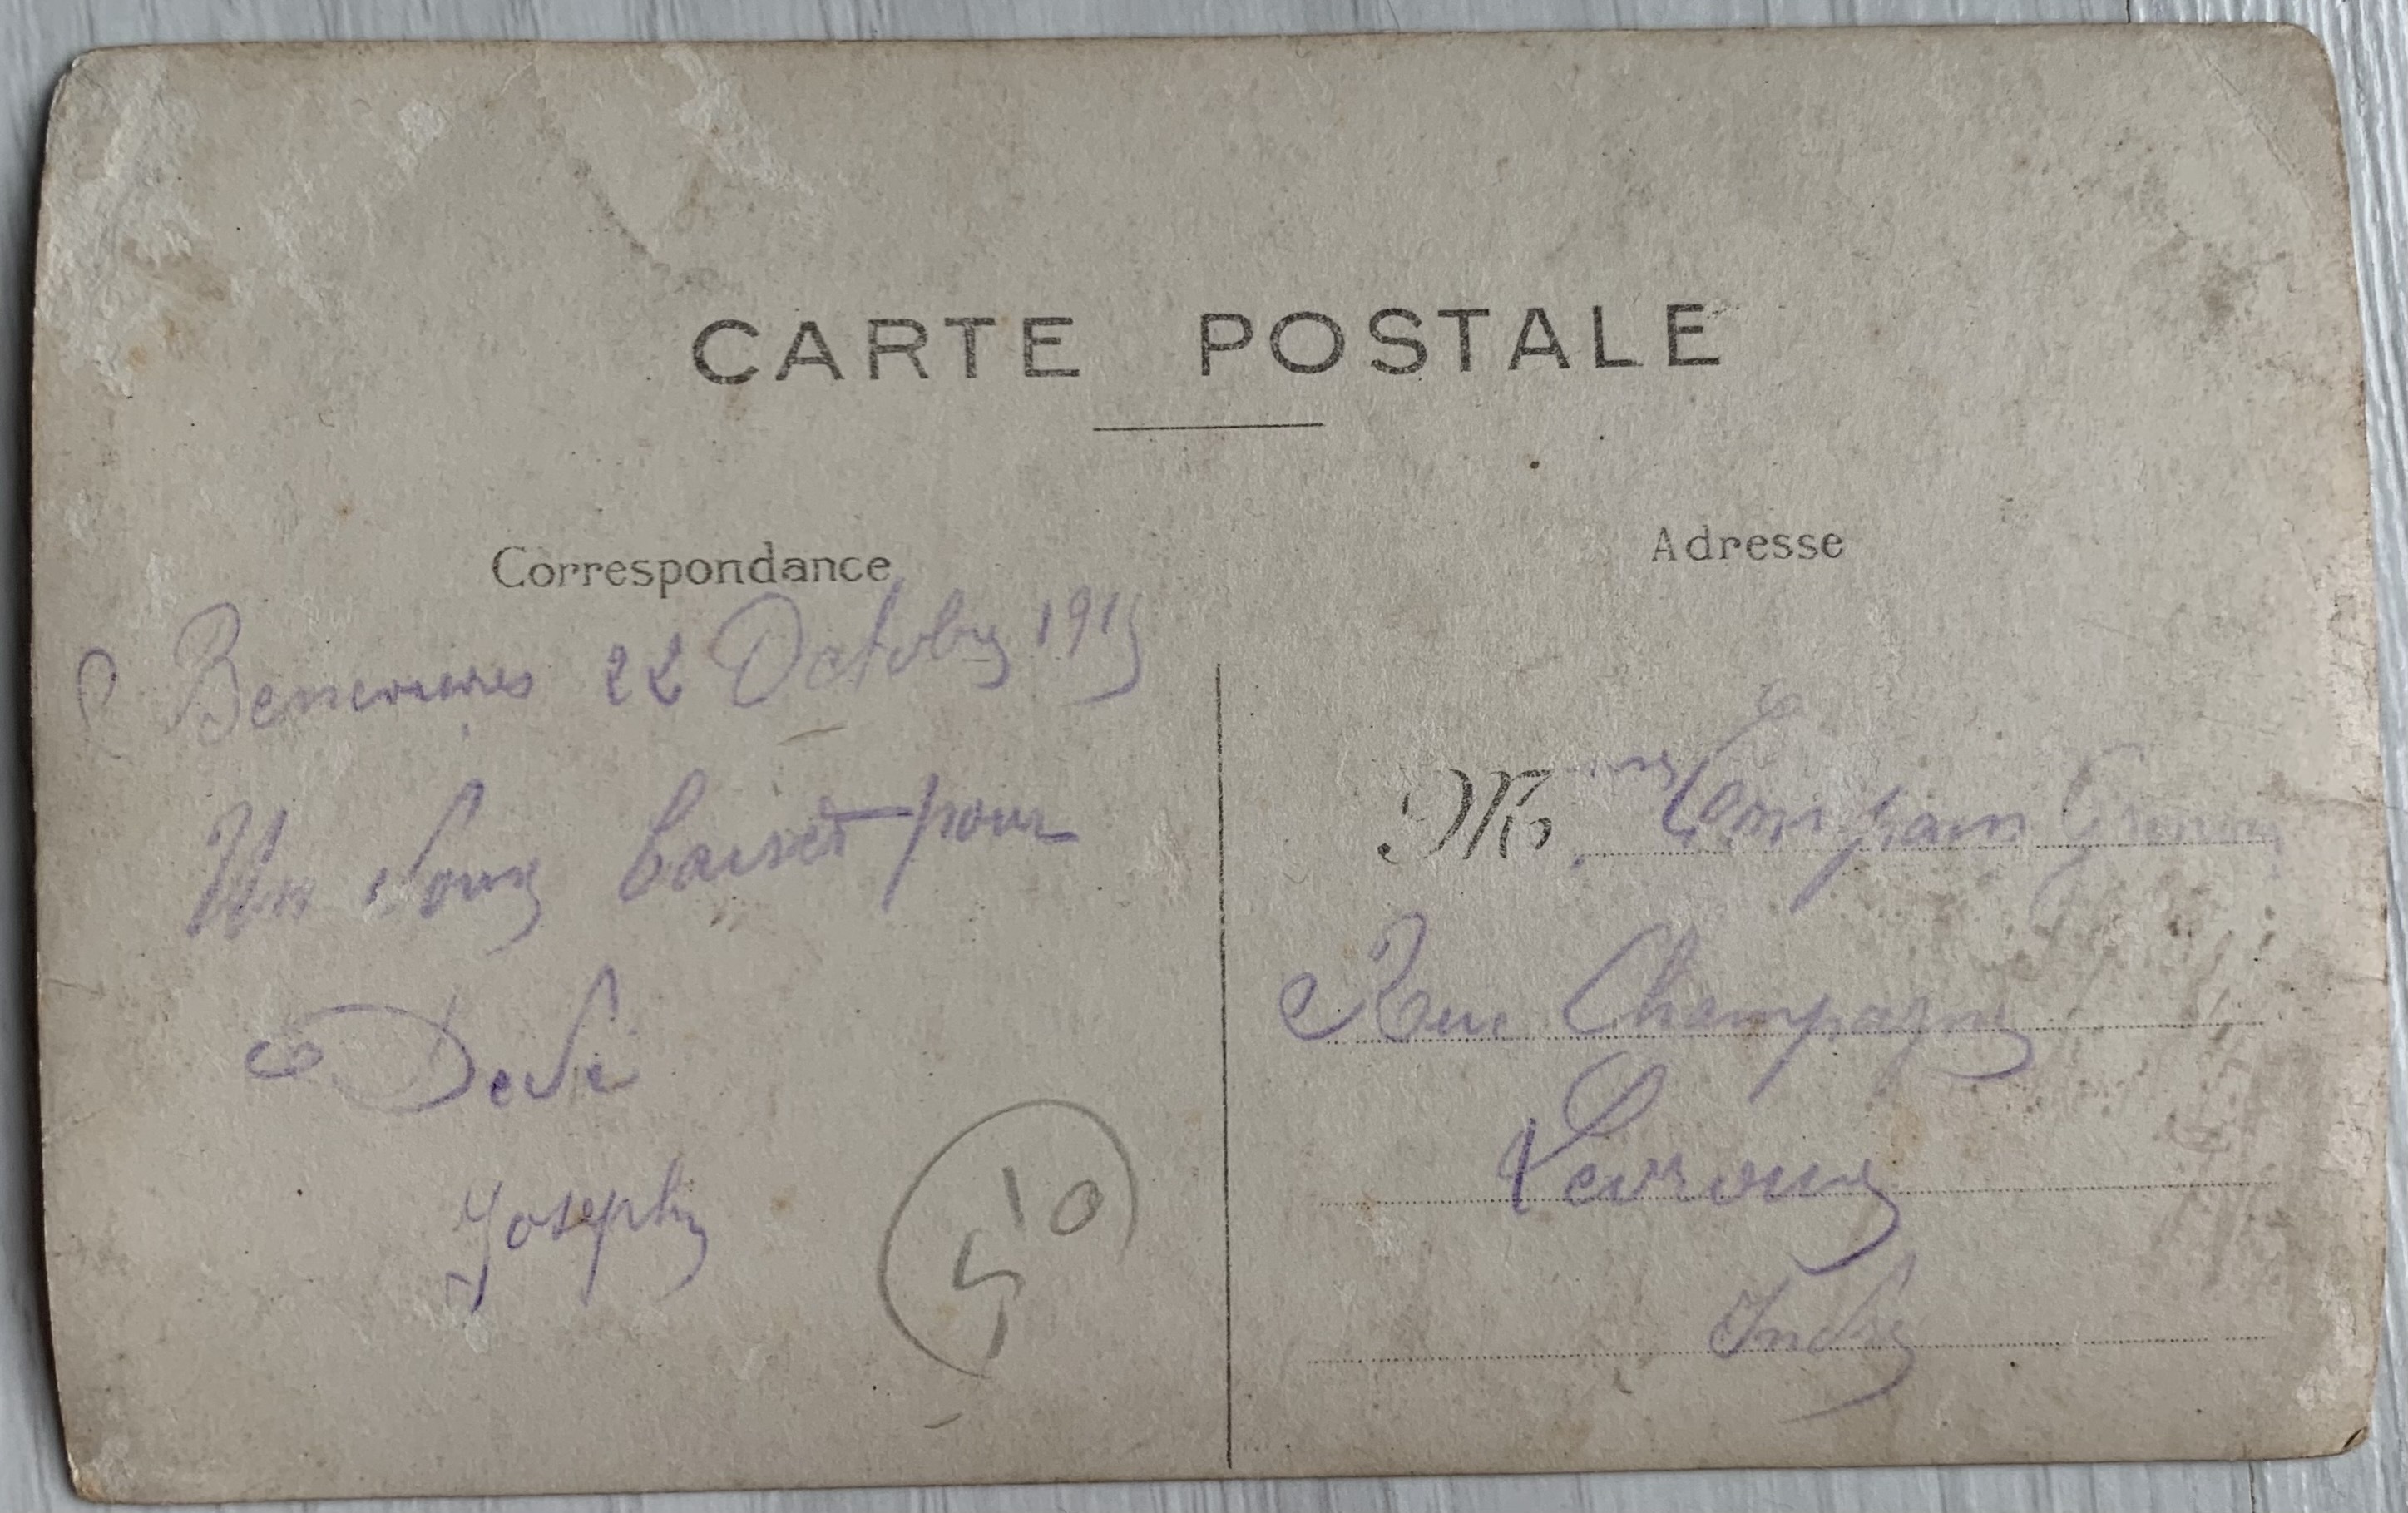 CARTE POSTALE
Correspondance
22 Octobre 1915
Un doux baiser pour
Dédé
Joseph
510
Adresse
Mme Compain
Rue Champagne
Levroux
Indre